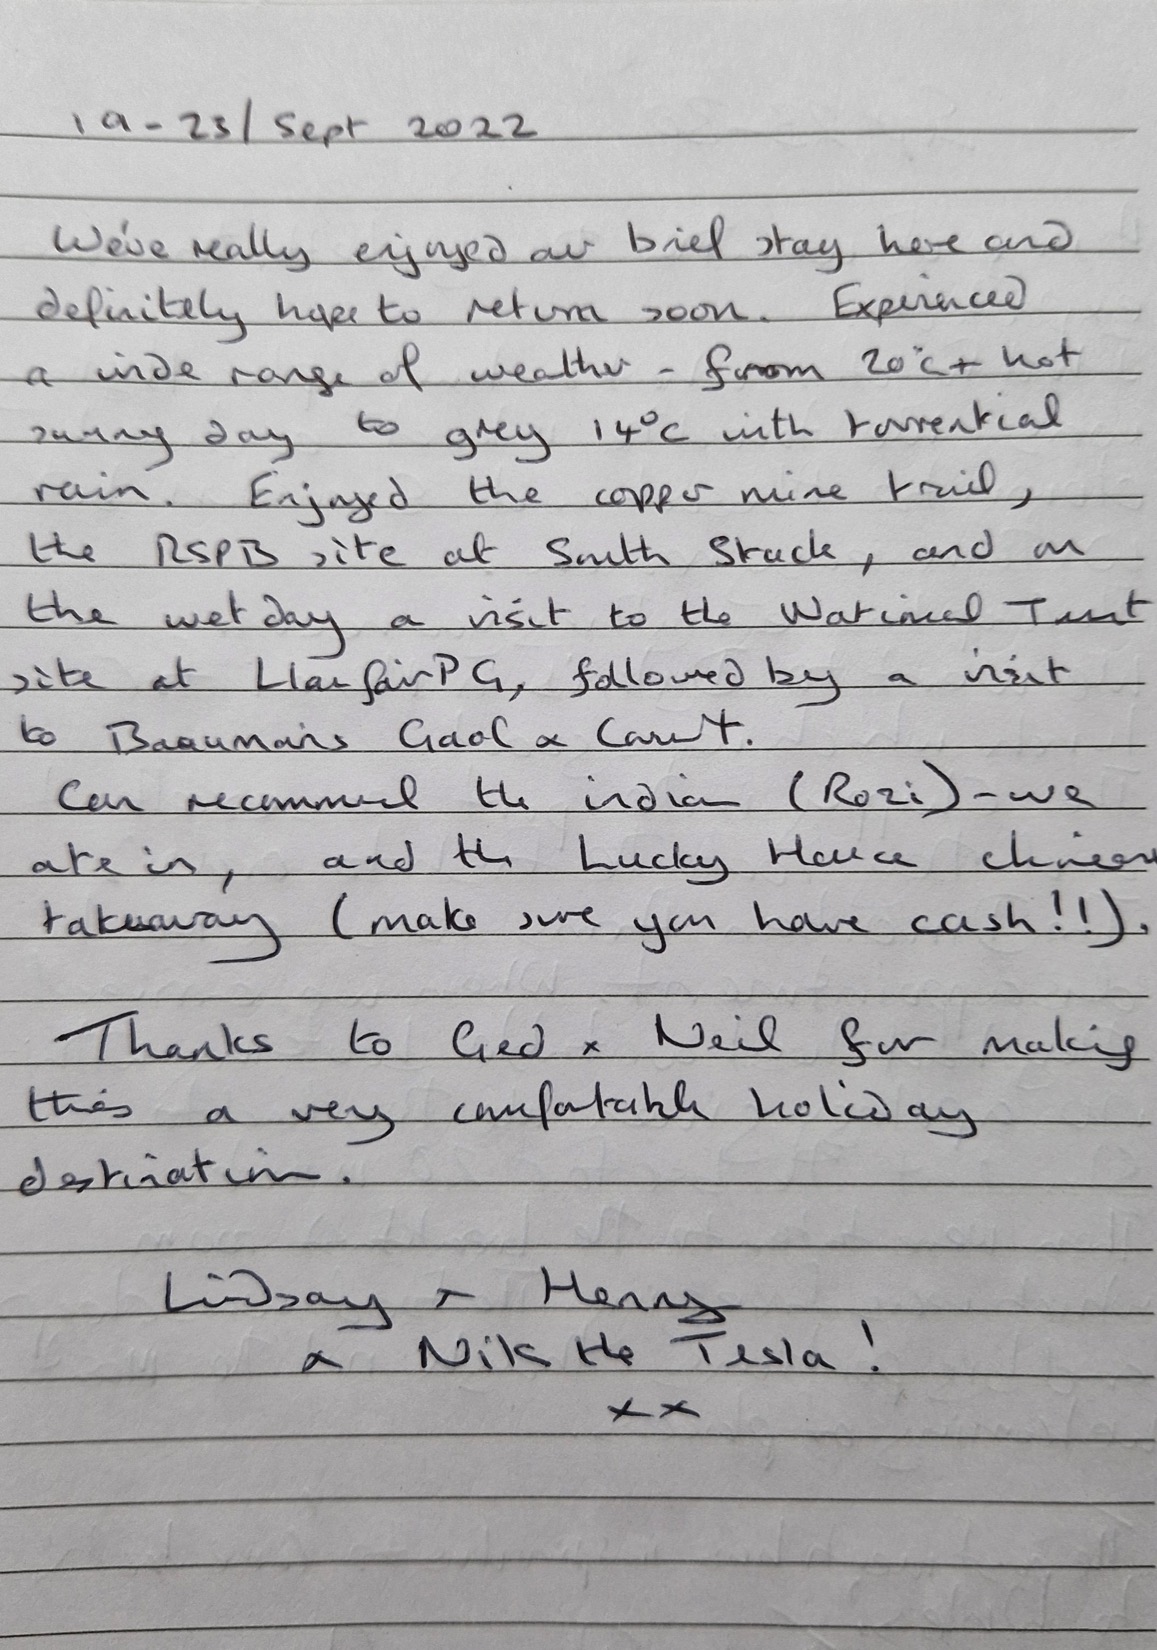 19-23/ Sept 2022
We've really enjoyed our brief stay here and
definitely hope to return soon. Experienced
a wide range of weather - from 20°c+ hot
sunny day to grey 14°c with torrential
rain. Enjoyed the copper mine trail,
the RSPB site at South Stack, and on
the wet day a visit to the National Trust
site at LlanfairPG, followed by a visit
to Beaumaris Gaol & Court.
Can recommend the indian (Rozi) - we
ate in, and the Lucky House chinese
takeaway (make sure you have cash!!).
Thanks to Ged & Neil for making
this a very comfortable holiday
destination.
Lindsay & Henny
& Nik the Tesla!
xx